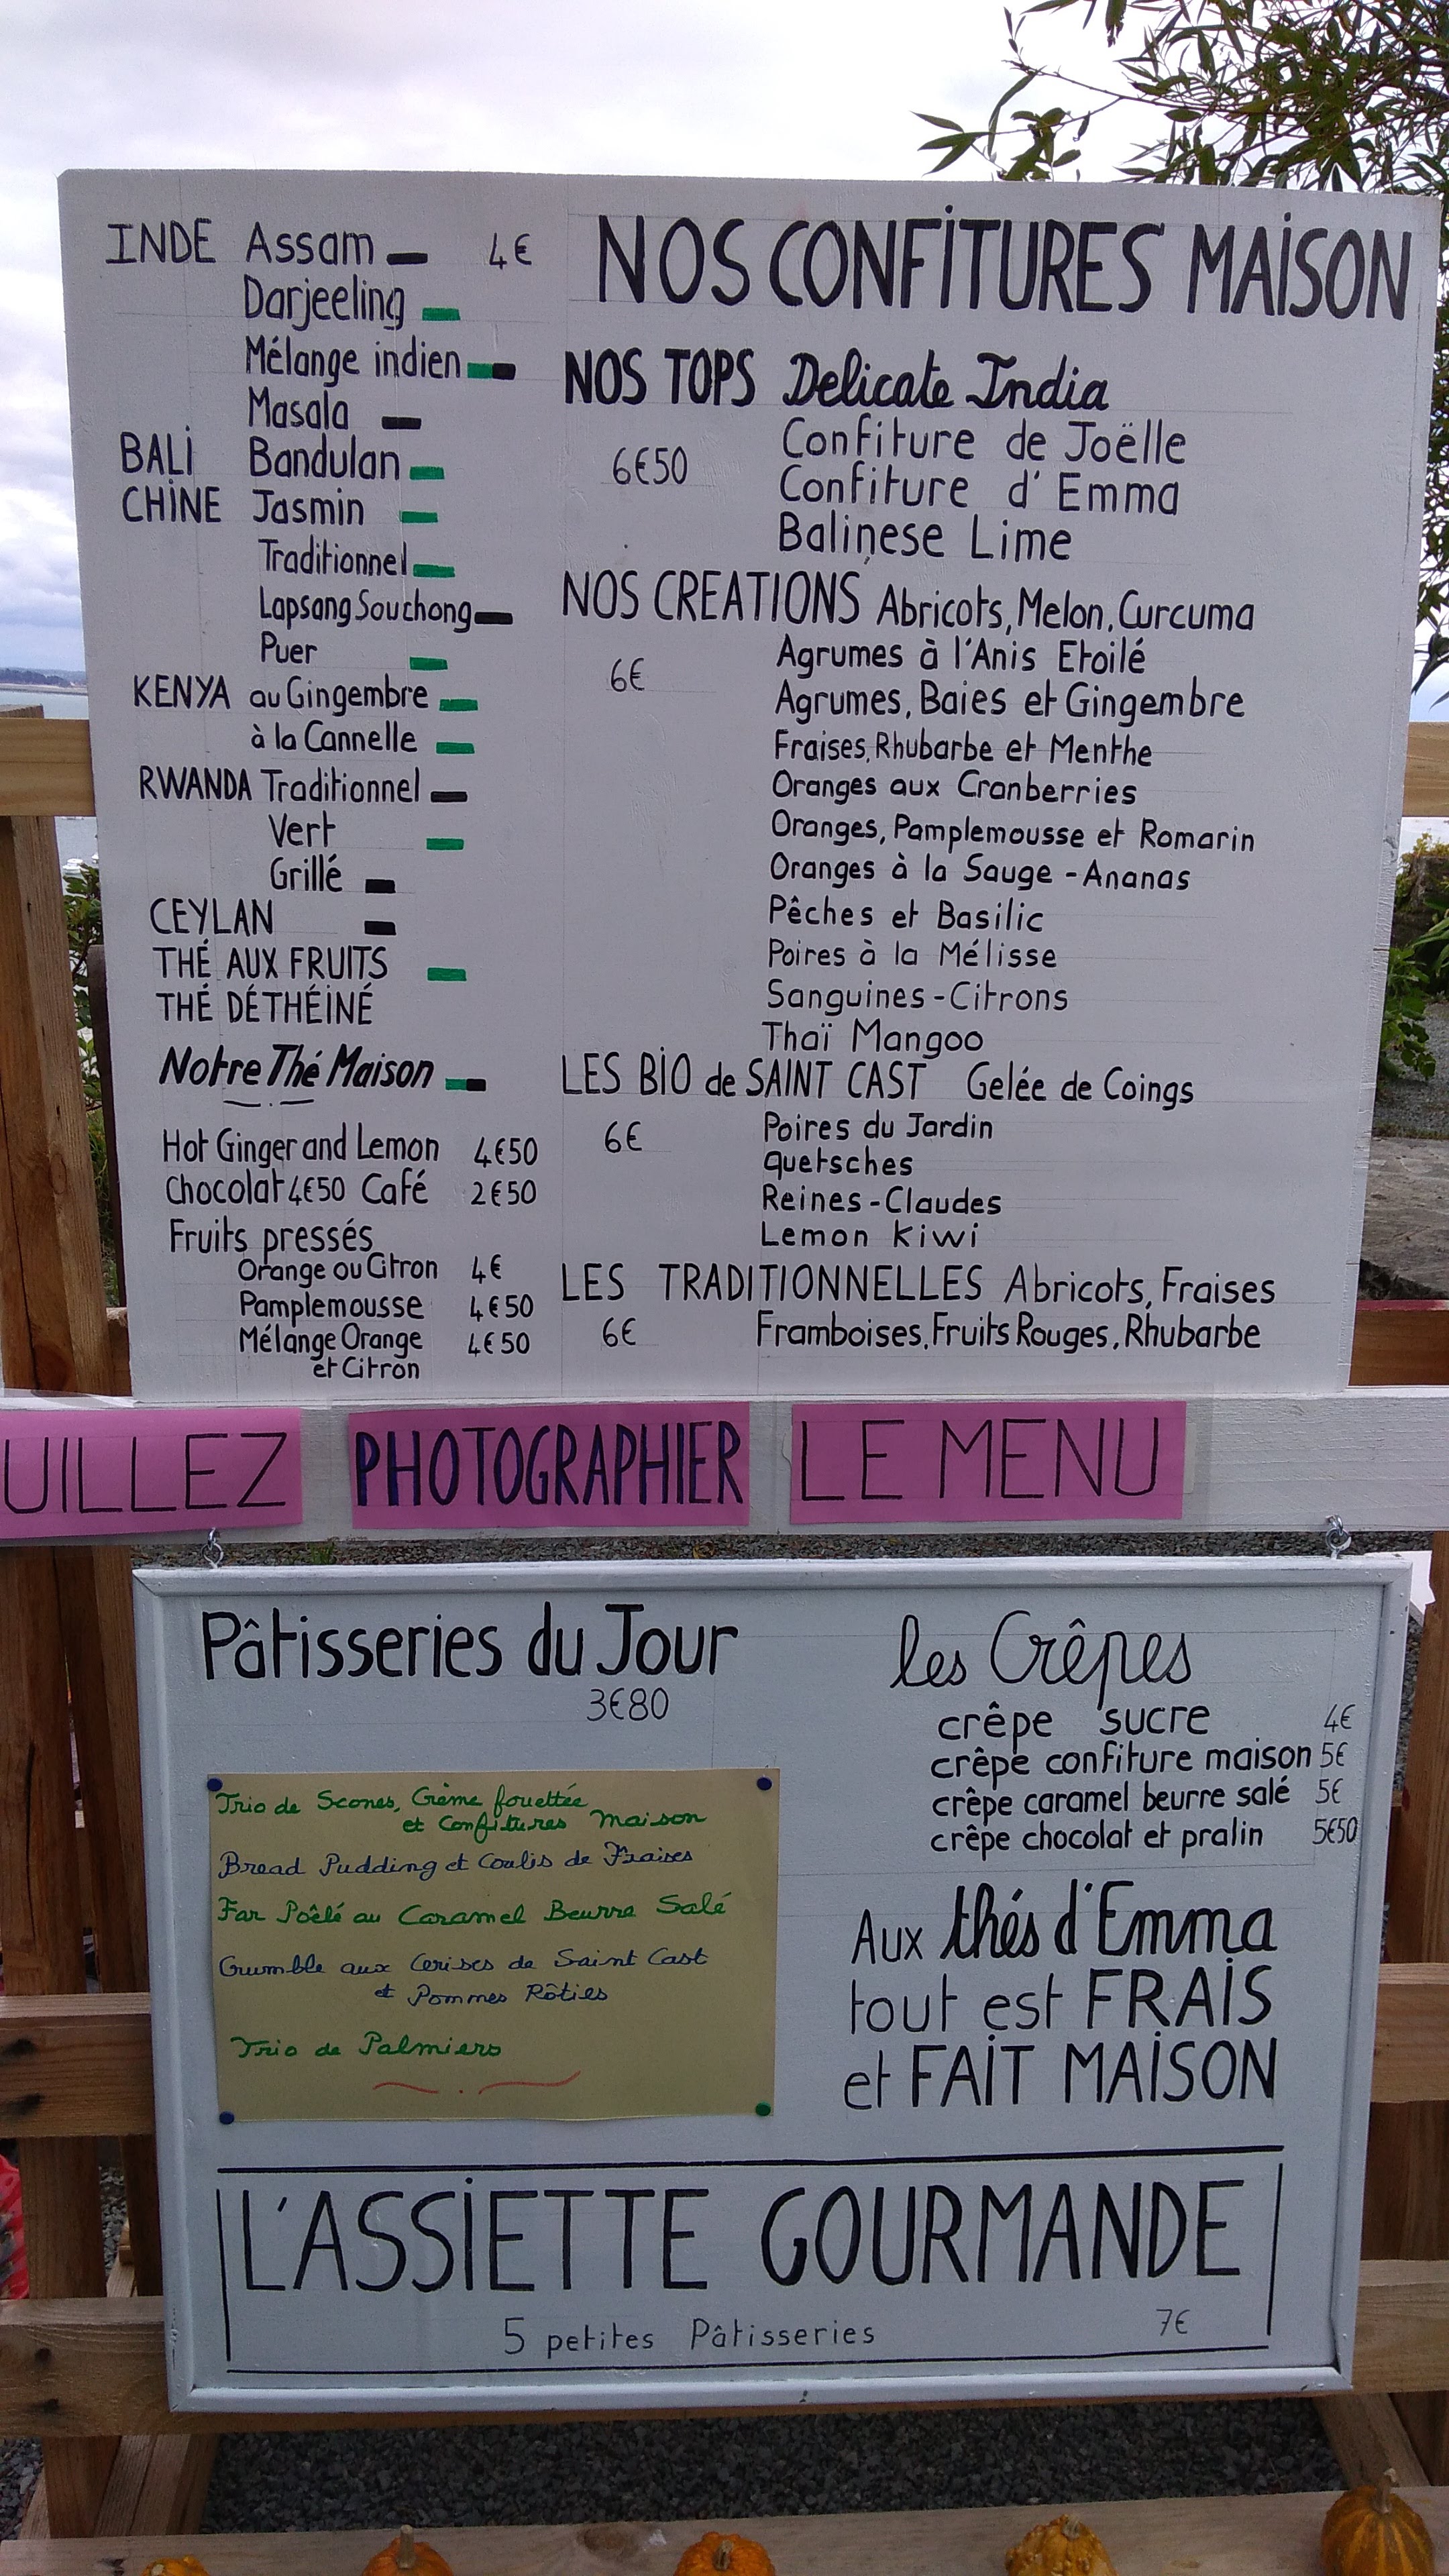 INDE Assam 4€
Darjeeling
Mélange indien
Masala
BALI Bandulan
CHINE Jasmin
Traditionnel
Lapsang Souchong
Puer
KENYA au Gingembre
à la Cannelle
RWANDA Traditionnel
Vert
Grillé
CEYLAN
THÉ AUX FRUITS
THÉ DÉTHÉINÉ
Notre Thé Maison
Hot Ginger and Lemon 4€50
Chocolat 4€50 Café 2€50
Fruits pressés
Orange ou Citron 4€
Pamplemousse 4€50
Mélange Orange 4€50
et Citron
NOS CONFITURES MAISON
NOS TOPS Delicate India
Confiture de Joëlle
6€50 Confiture d'Emma
Balinese Lime
NOS CREATIONS Abricots, Melon, Curcuma
Agrumes à l'Anis Etoilé
6€ Agrumes, Baies et Gingembre
Fraises, Rhubarbe et Menthe
Oranges aux Cranberries
Oranges, Pamplemousse et Romarin
Oranges à la Sauge - Ananas
Pêches et Basilic
Poires à la Mélisse
Sanguines - Citrons
Thaï Mangoo
LES BIO de SAINT CAST Gelée de Coings
6€ Poires du Jardin
quetsches
Reines-Claudes
Lemon Kiwi
LES TRADITIONNELLES Abricots, Fraises
6€ Framboises, Fruits Rouges, Rhubarbe
UILLEZ PHOTOGRAPHIER LE MENU
Pâtisseries du Jour
3€80
Trio de Scones, Crème fouettée
et Confitures Maison
Bread Pudding et Coulis de Fraises
Far Poêlé au Caramel Beurre Salé
Crumble aux Cerises de Saint Cast
et Pommes Rôties
Trio de Palmiers
les Crêpes
crêpe sucre 4€
crêpe confiture maison 5€
crêpe caramel beurre salé 5€
crêpe chocolat et pralin 5€50
Aux thés d'Emma
tout est FRAIS
et FAIT MAISON
L'ASSIETTE GOURMANDE
5 petites Pâtisseries 7€